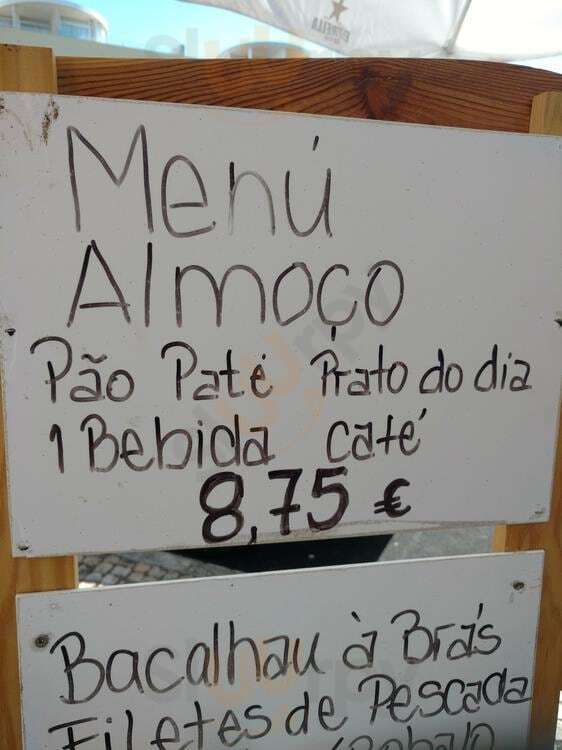 ESTRELLA
Menú
Almoço
Pão Paté Prato do dia
1 Bebida café
8,75 €
Bacalhau à Brás
Filetes de Pescada